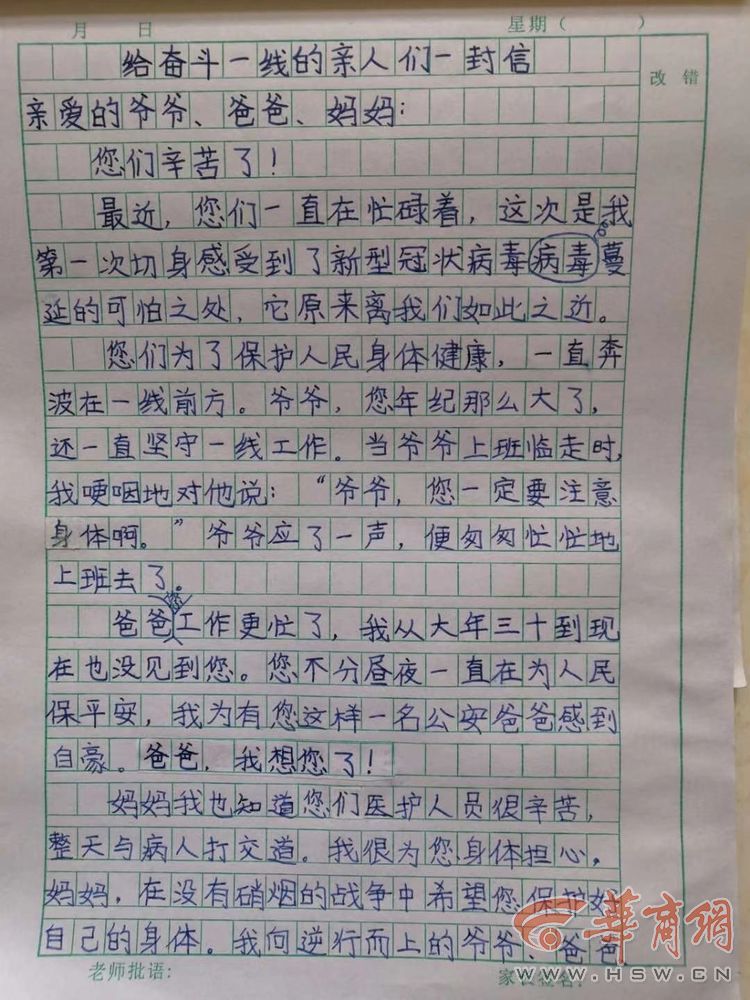 月 日 星期（ ）
给奋斗一线的亲人们一封信
改错
亲爱的爷爷、爸爸、妈妈：
您们辛苦了！
最近，您们一直在忙碌着，这次是我
第一次切身感受到了新型冠状病毒病毒蔓
延的可怕之处，它原来离我们如此之近。
您们为了保护人民身体健康，一直奔
波在一线前方。爷爷，您年纪那么大了，
还一直坚守一线工作。当爷爷上班临走时，
我哽咽地对他说：“爷爷，您一定要注意
身体啊。”爷爷应了一声，便匆匆忙忙地
上班去了。
爸爸您工作更忙了，我从大年三十到现
在也没见到您。您不分昼夜一直在为人民
保平安，我为有您这样一名公安爸爸感到
自豪。爸爸，我想您了！
妈妈我也知道您们医护人员很辛苦，
整天与病人打交道。我很为您身体担心，
妈妈，在没有硝烟的战争中希望您保护好
自己的身体。我向逆行而上的爷爷、爸爸、
華商網
WWW.HSW.CN
老师批语：
家长签名：